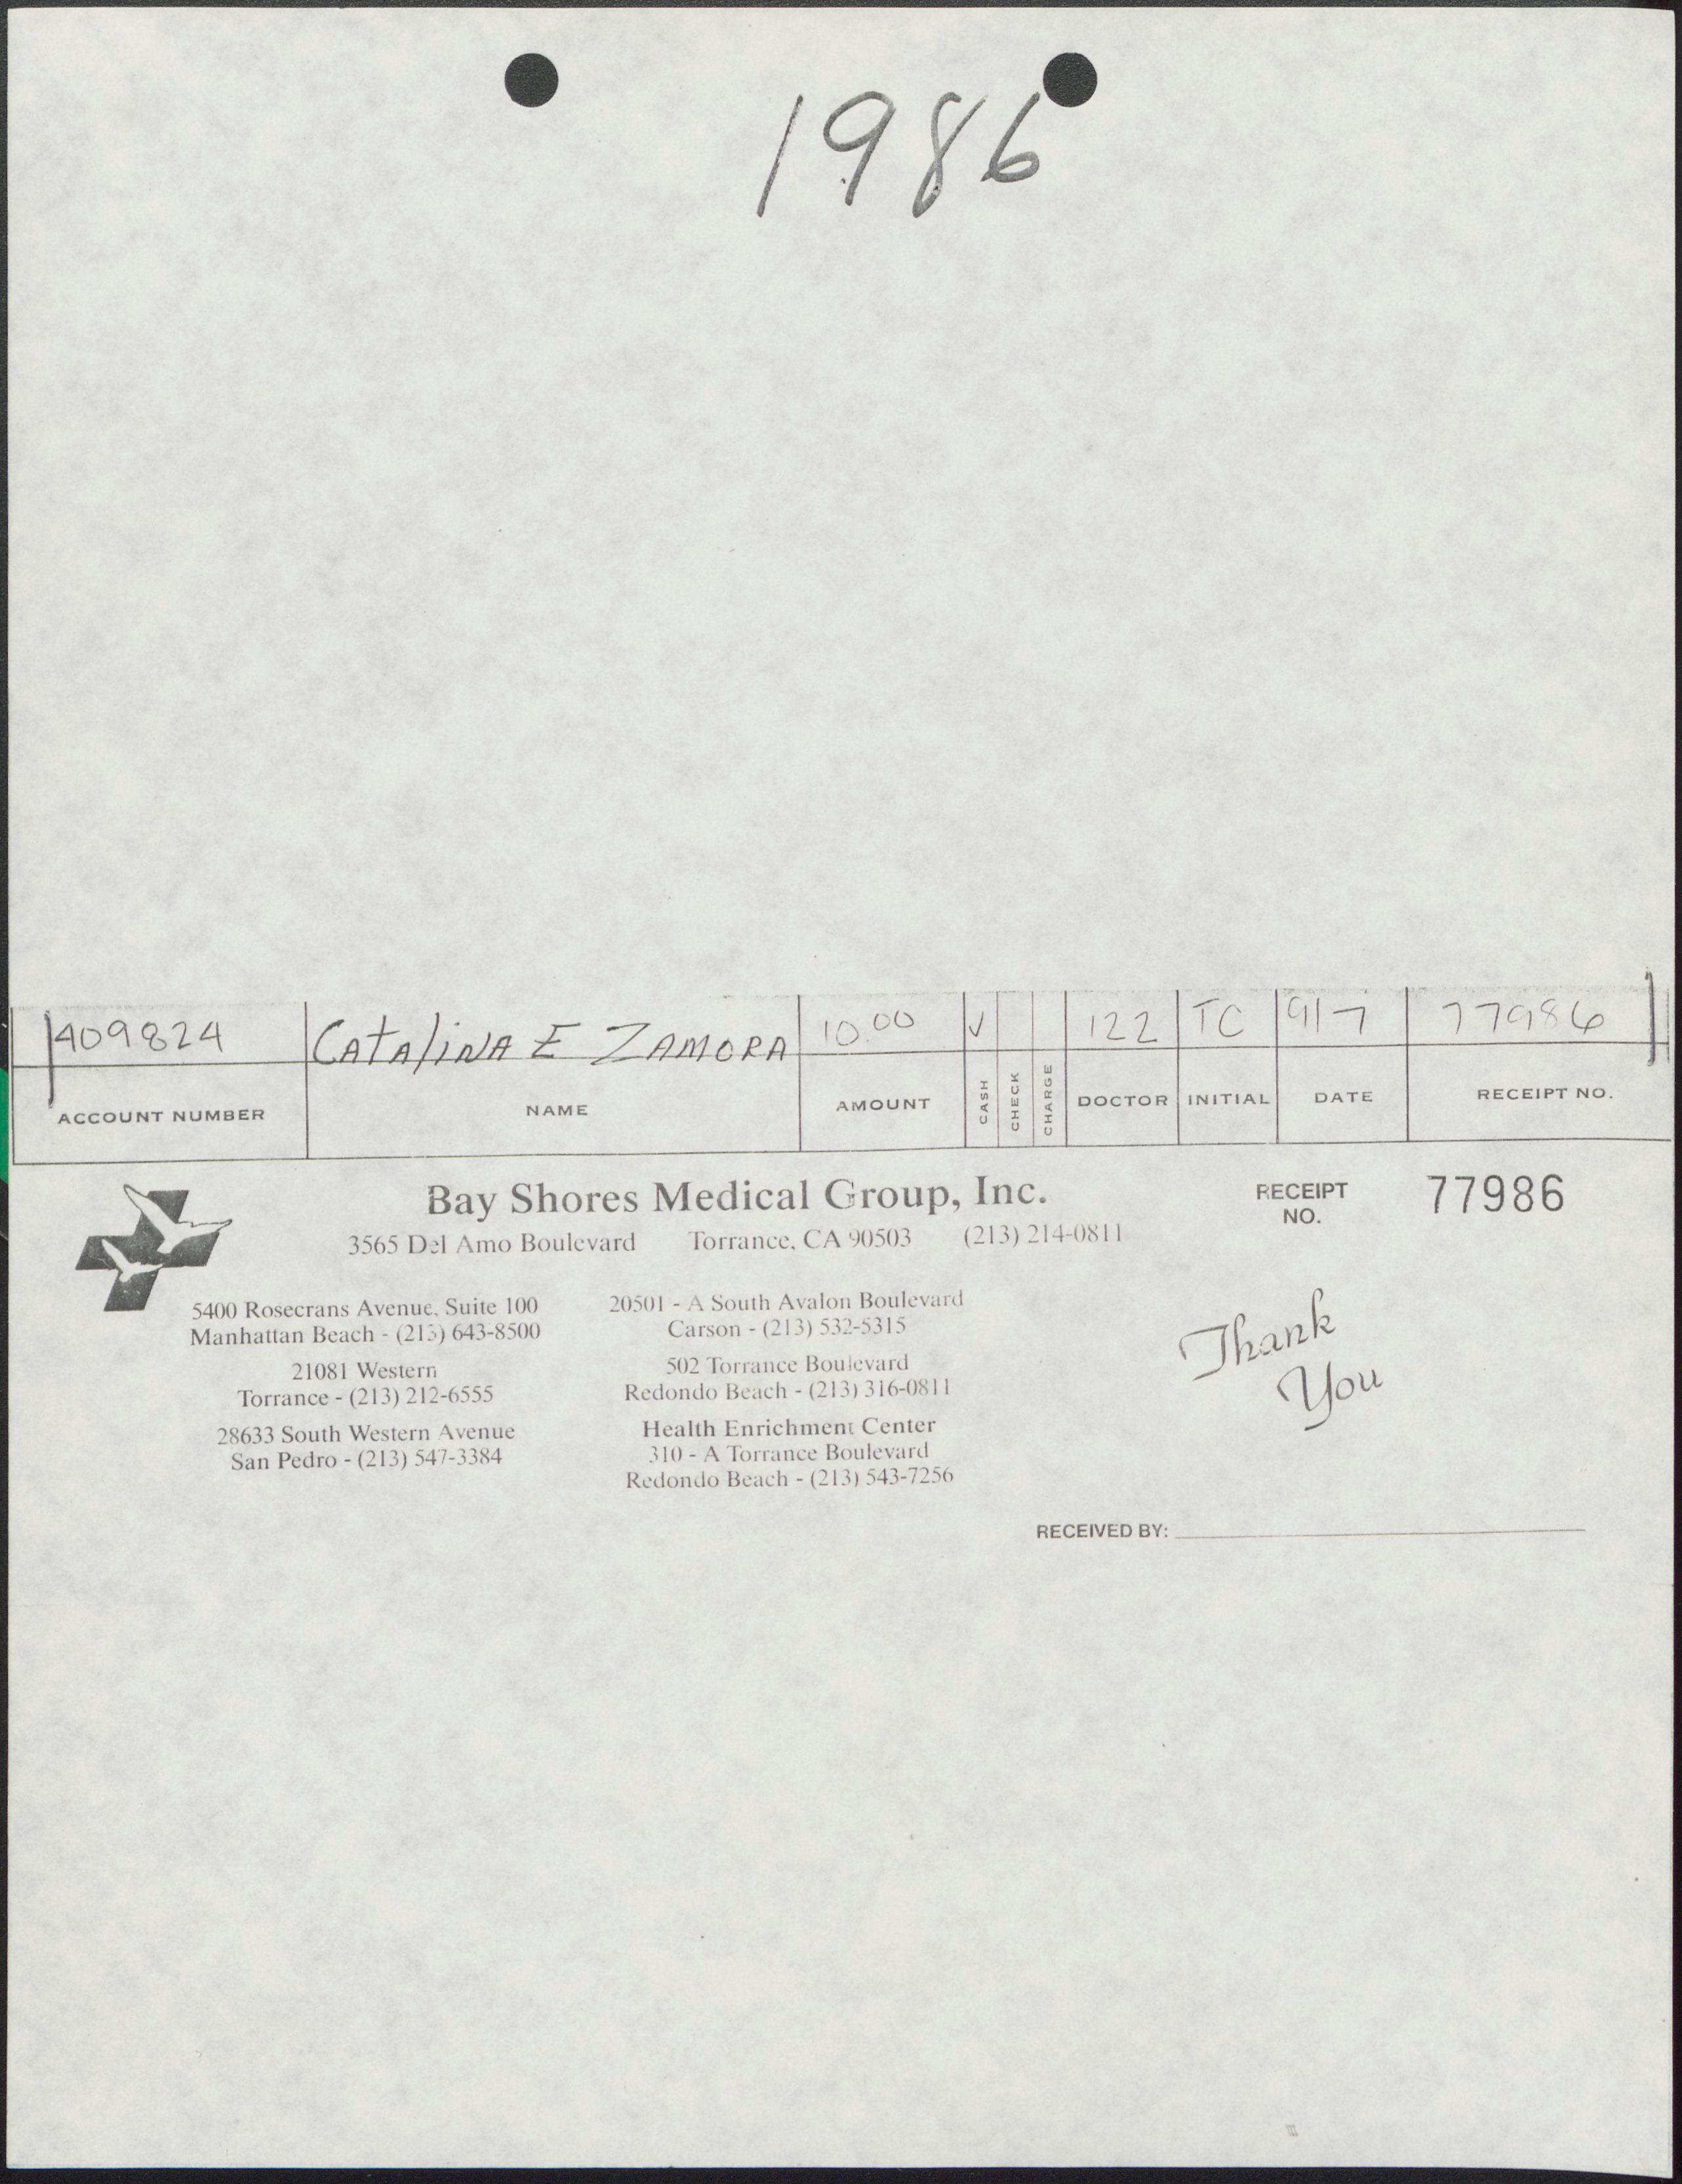 1986
409824 CATALINA E ZAMORA 10.00 ✓ 122 TC 9/7 77986
ACCOUNT NUMBER NAME AMOUNT CASH CHECK CHARGE DOCTOR INITIAL DATE RECEIPT NO.
Bay Shores Medical Group, Inc.
3565 Del Amo Boulevard Torrance, CA 90503 (213) 214-0811
RECEIPT NO. 77986
5400 Rosecrans Avenue, Suite 100
Manhattan Beach - (213) 643-8500
21081 Western
Torrance - (213) 212-6555
28633 South Western Avenue
San Pedro - (213) 547-3384
20501 - A South Avalon Boulevard
Carson - (213) 532-5315
502 Torrance Boulevard
Redondo Beach - (213) 316-0811
Health Enrichment Center
310 - A Torrance Boulevard
Redondo Beach - (213) 543-7256
Thank
You
RECEIVED BY: